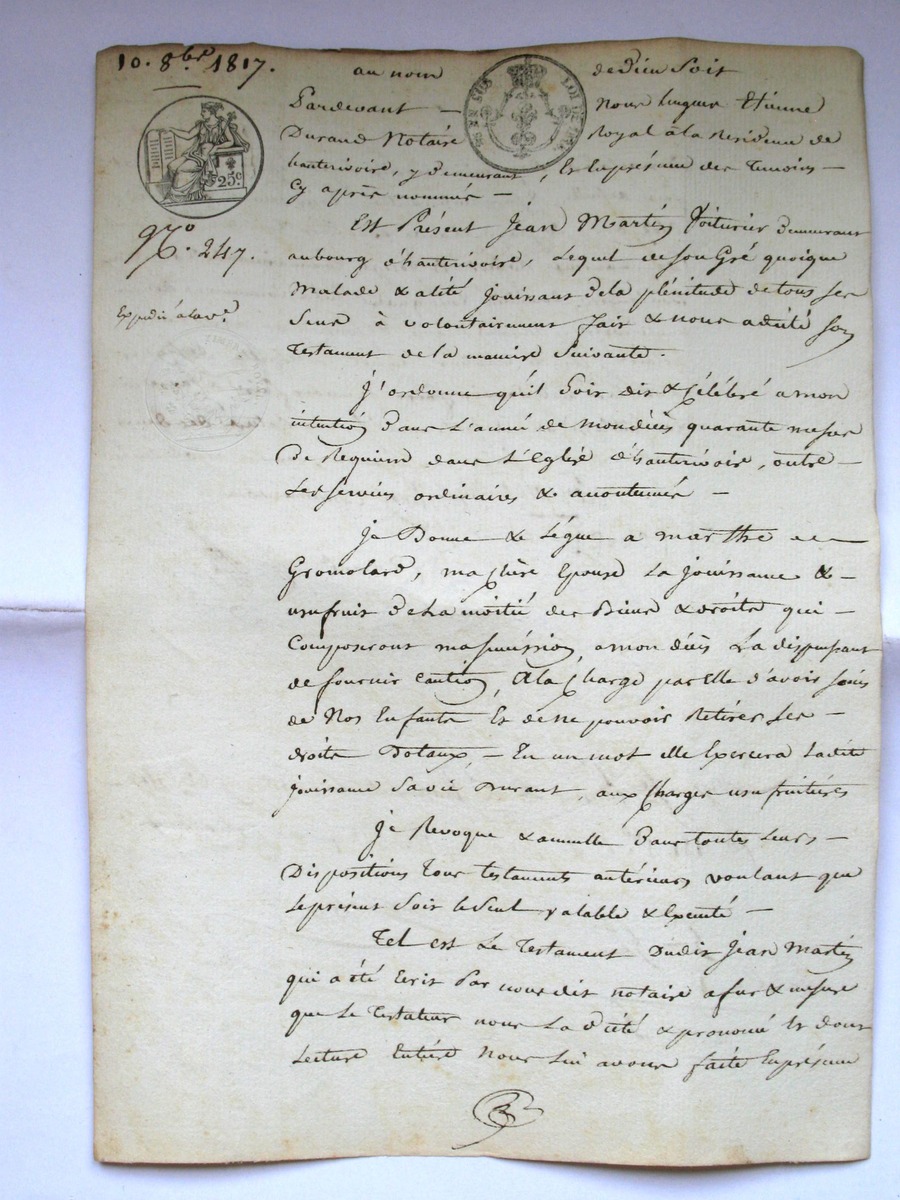 10. 8bre 1817.
au nom de Dieu Soit
Pardevant — Nous hugues Etienne
Durand Notaire Royal à la Residence de
hauterivoire, y demeurant, Et En présence des Temoins —
Cy après nommés —
25c
No. 247.
Expedié
Est Présent Jean Martin Voiturier demeurant
au bourg d'hauterivoire, Lequel de son Gré quoique
Malade & alité jouissant de la plénitude de tous ses
Sens à volontairement fait & nous a dicté son
Testament de la maniere Suivante.
J'ordonne qu'il Soit dit & Célébré a mon
intention dans L'année de mon décès quarante messes
de Requiem dans L'Eglise d'hauterivoire, outre —
Les services ordinaires & accoutumés —
Je Donne & Lègue a marthe
Gromolard, ma chère Epouse La jouissance & —
usufruit de La moitié des Biens & droits qui —
Composeront ma succession, a mon décès La dispensant
de fournir caution, A la Charge par Elle d'avoir soins
de Nos Enfants Et de ne pouvoir Retirer Ses —
droits Dotaux, — En un mot elle Exercera Ladite
jouissance Sa vie Durant, aux Charges usufruitieres
Je Revoque & annulle Dans toutes Leurs —
Dispositions Tous testaments antérieurs voulant que
Le présent Soit le Seul valable & Executé —
Tel est Le Testament Dudit Jean Martin
qui a été Ecrit Par nous dit notaire a fur & mesure
que Le Testateur nous L'a dicté & prononcé Et dont
Lecture Entiere Nous Lui avons faite En présence